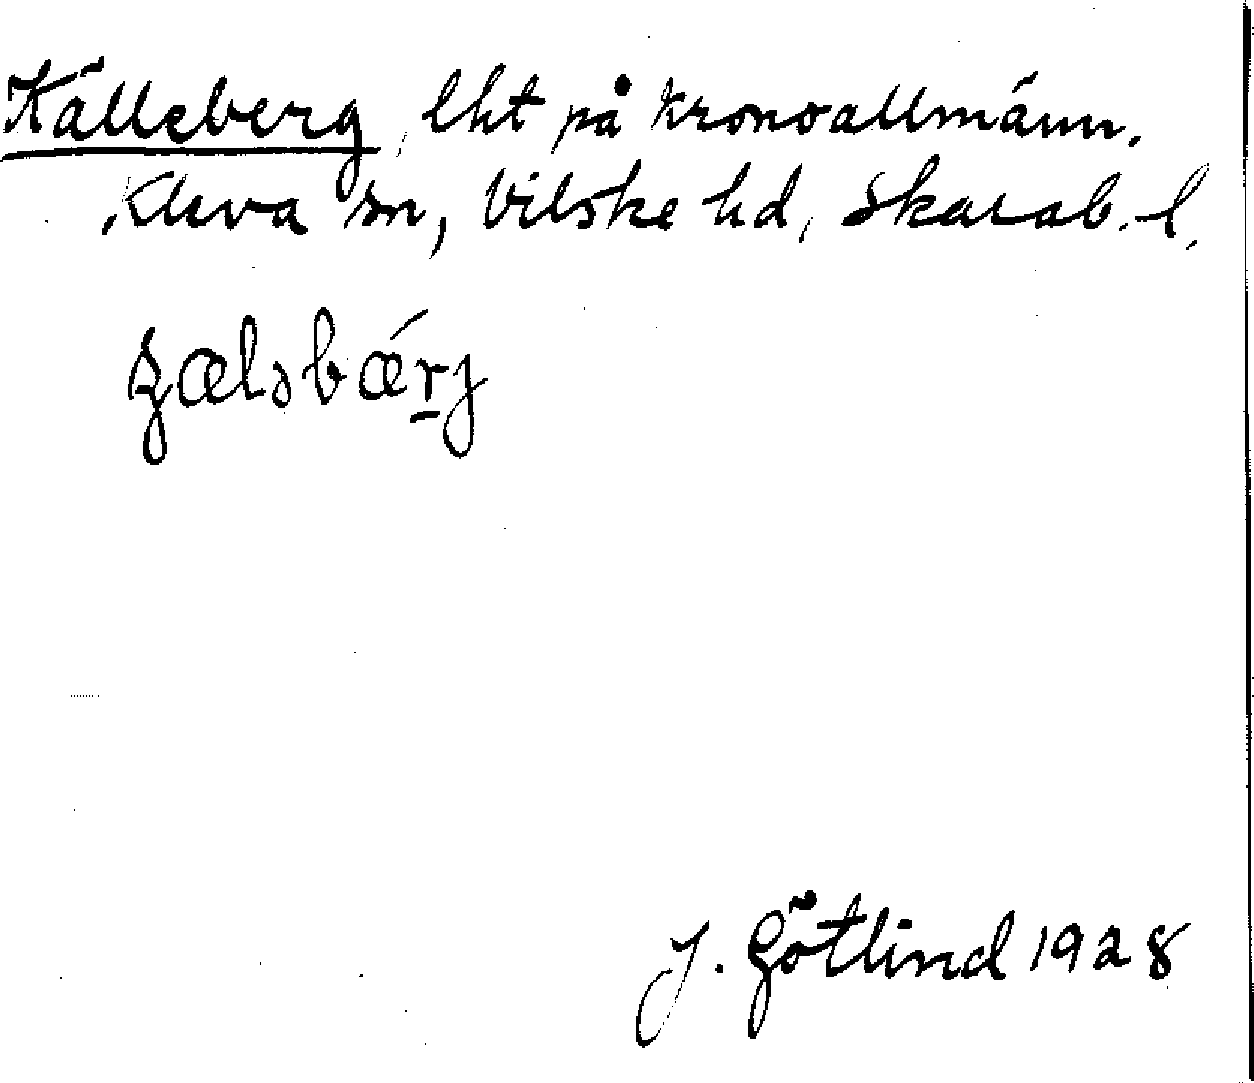 Källeberg, lht på kronoallmänn.
Kleva sn, Vilske hd, Skarab. l.
ʒælǝbǽrj
J. Götlind 1928